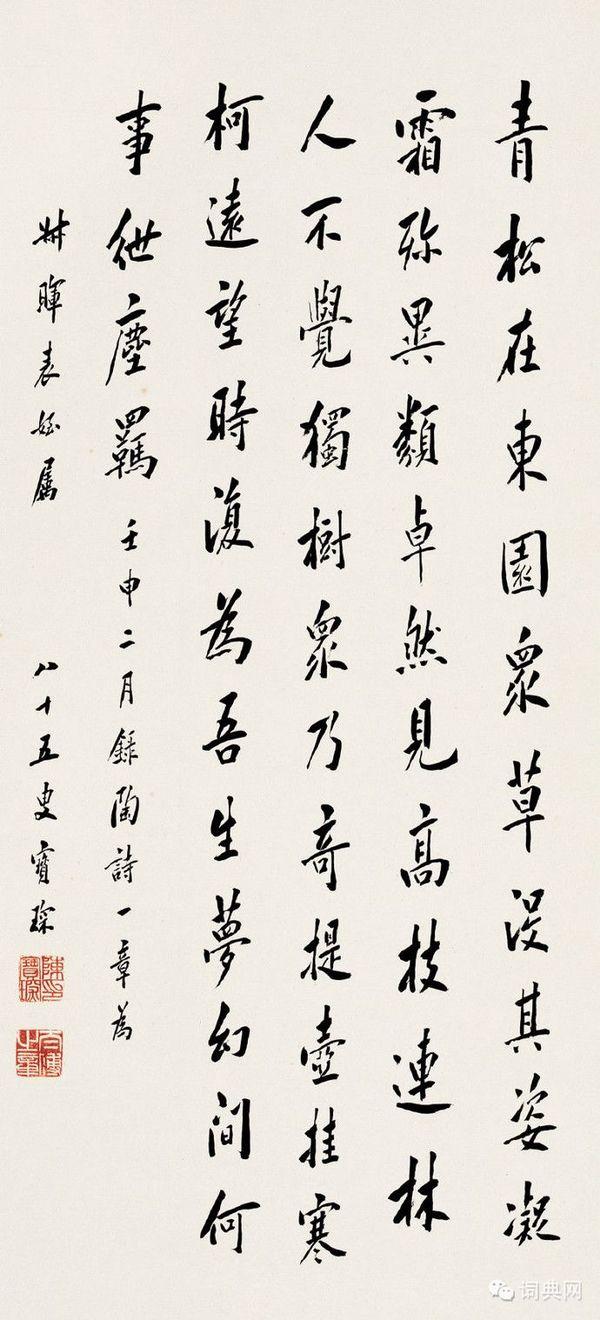 青松在東園眾草沒其姿凝
霜殄異類卓然見高枝連林
人不覺獨樹眾乃奇提壺挂寒
柯遠望時復為吾生夢幻間何
事紲塵羈壬申二月錄陶詩一章為
暉表姪屬
八十五叟寶琛
陳寶琛印
太傅之章
词典网